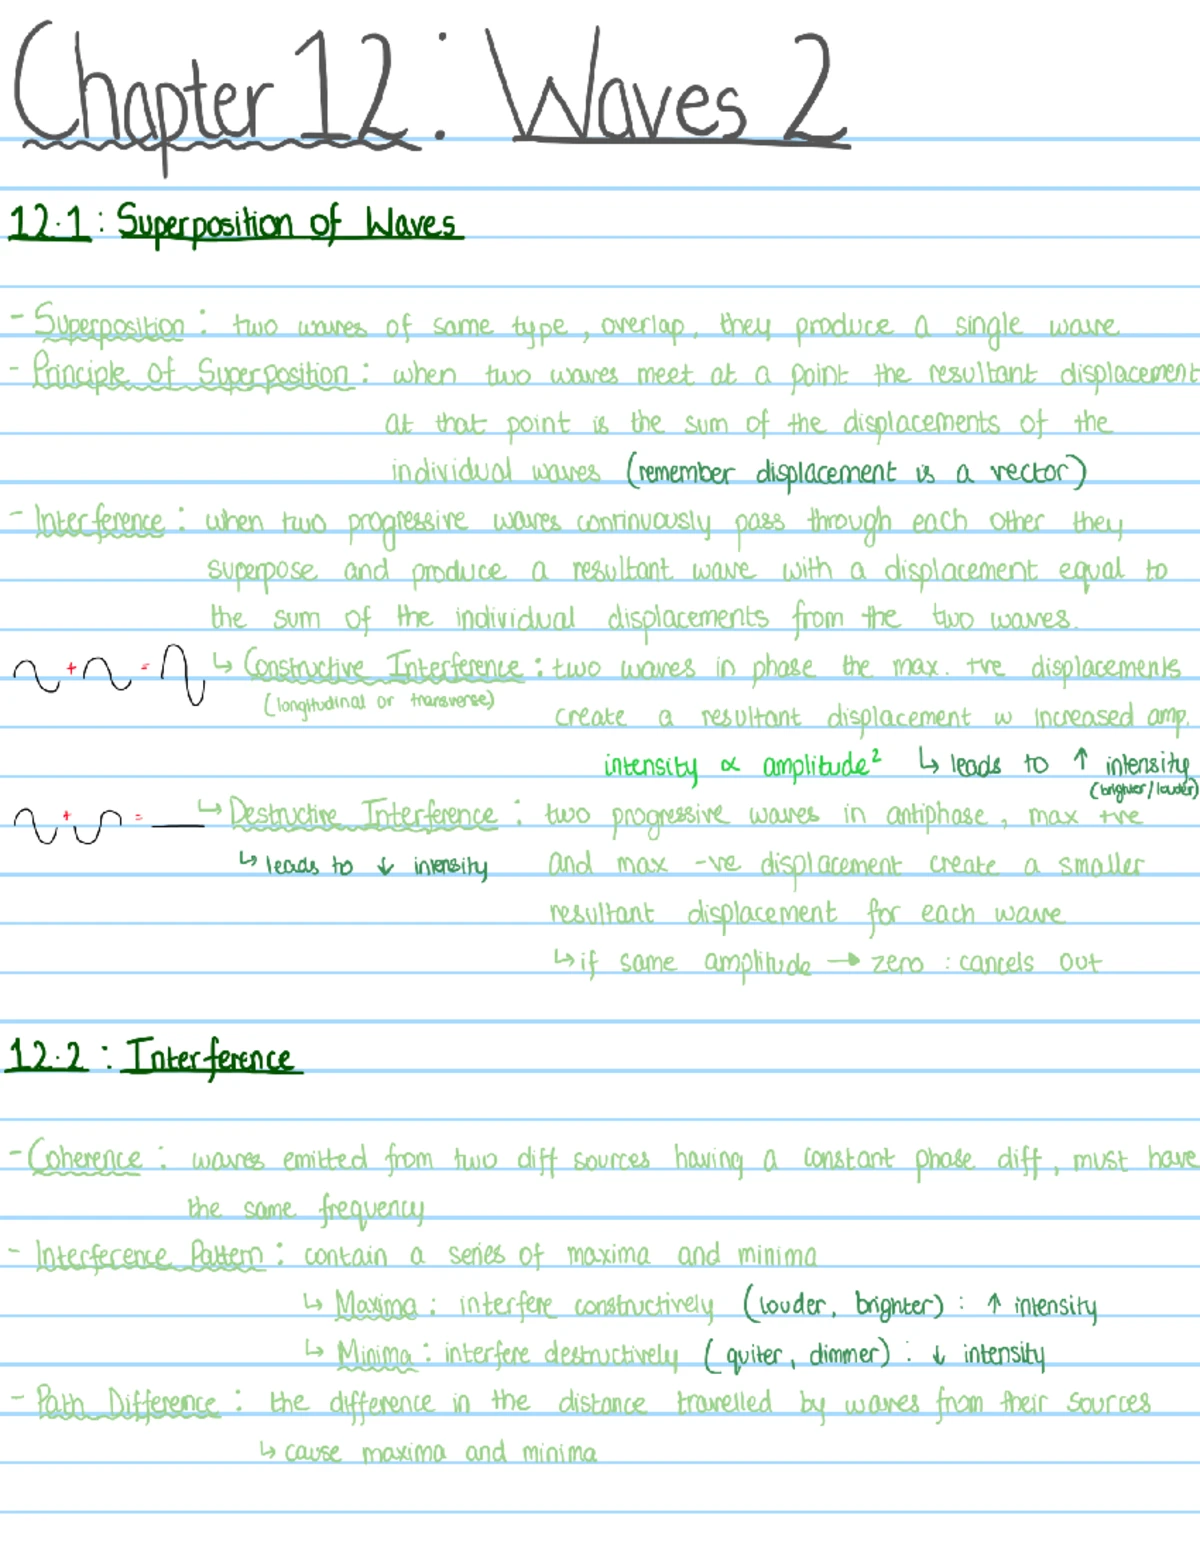 Chapter 12: Waves 2
12.1: Superposition of Waves
- Superposition: two waves of same type, overlap, they produce a single wave
- Principle of Superposition: when two waves meet at a point the resultant displacement
at that point is the sum of the displacements of the
individual waves (remember displacement is a vector)
- Interference: when two progressive waves continuously pass through each other they
superpose and produce a resultant wave with a displacement equal to
the sum of the individual displacements from the two waves.
+ = ↳ Constructive Interference: two waves in phase the max. +ve displacements
(longitudinal or transverse)
create a resultant displacement w increased amp.
intensity ∝ amplitude² ↳ leads to ↑ intensity
(brighter/louder)
+ = ↳ Destructive Interference: two progressive waves in antiphase, max +ve
↳ leads to ↓ intensity and max -ve displacement create a smaller
resultant displacement for each wave
↳ if same amplitude → zero: cancels out
12.2: Interference
- Coherence: waves emitted from two diff sources having a constant phase diff, must have
the same frequency
- Interference Pattern: contain a series of maxima and minima
↳ Maxima: interfere constructively (louder, brighter): ↑ intensity
↳ Minima: interfere destructively (quiter, dimmer): ↓ intensity
- Path Difference: the difference in the distance travelled by waves from their sources
↳ cause maxima and minima